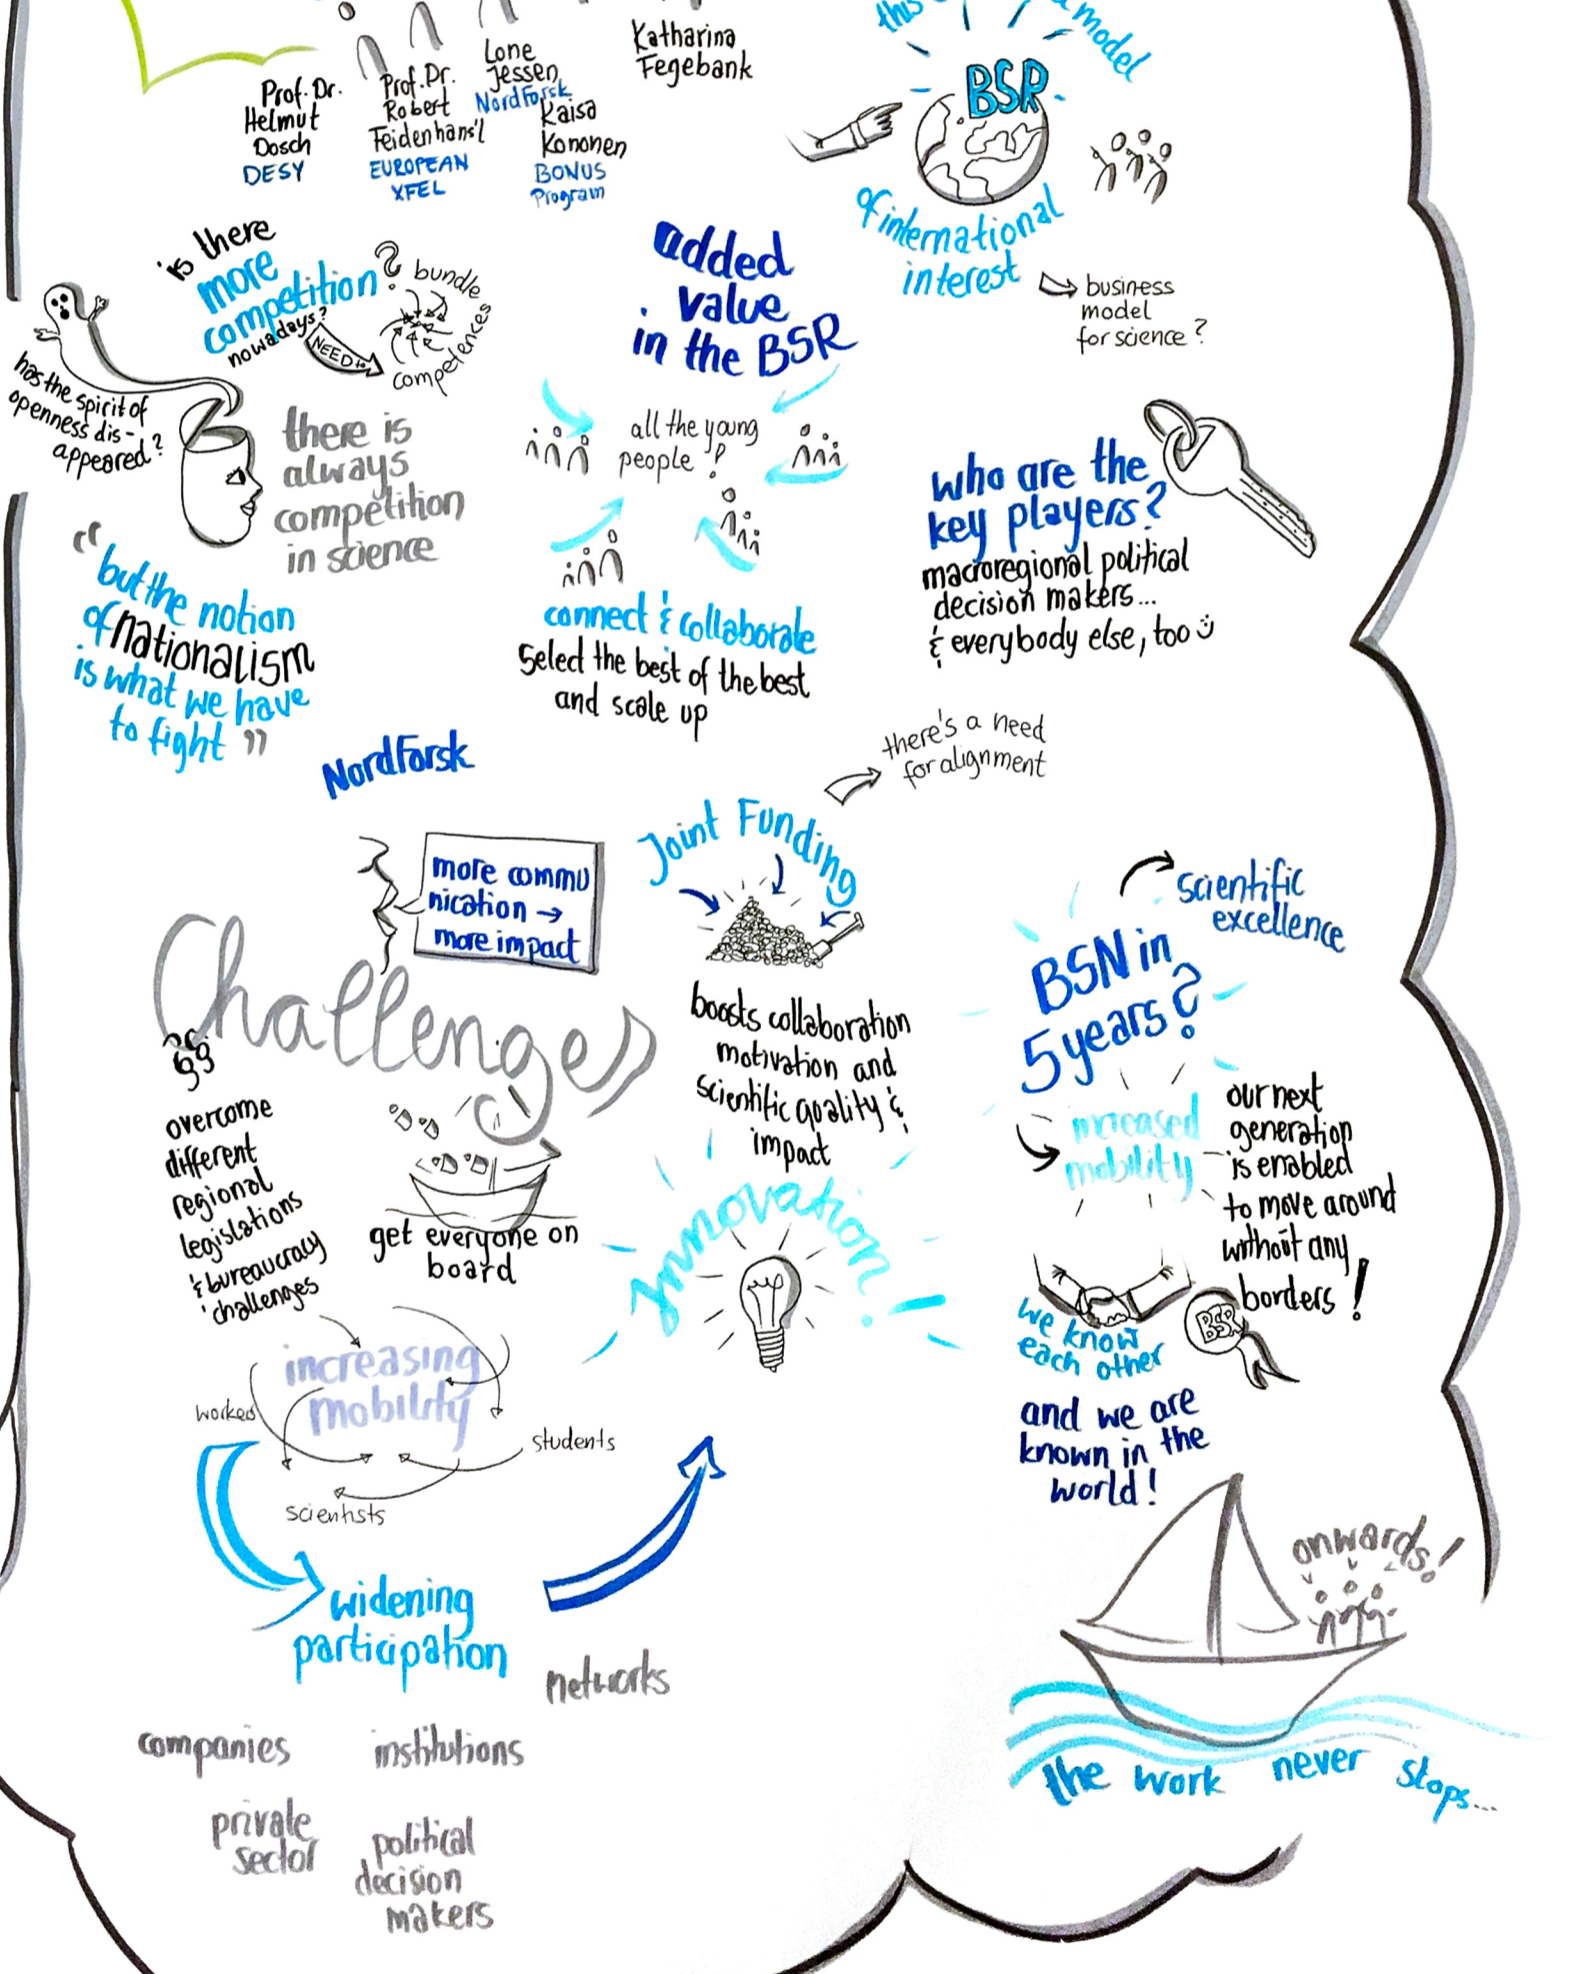 Prof. Dr.
Helmut
Dosch
DESY
Prof. Dr.
Robert
Feidenhans'l
EUROPEAN
XFEL
Lone
Jessen
NordForsk
Kaisa
Kononen
BONUS
Program
Katharina
Fegebank
this
model
BSR
of international
interest
business
model
for science?
is there
more
competition?
nowadays?
NEED to
bundle
competences
has the spirit of
openness dis-
appeared?
there is
always
competition
in science
"but the notion
of nationalism
is what we have
to fight"
added
value
in the BSR
all the young
people?!
connect & collaborate
select the best of the best
and scale up
who are the
key players?
macroregional political
decision makers...
& everybody else, too
NordForsk
more commu
nication →
more impact
Joint Funding
there's a need
for alignment
boosts collaboration
motivation and
scientific quality &
impact
Challenges
overcome
different
regional
legislations
& bureaucracy
challenges
get everyone on
board
increasing
mobility
workers
students
scientists
widening
participation
networks
companies
institutions
private
sector
political
decision
makers
Innovation!
BSN in
5 years?
scientific
excellence
increased
mobility
our next
generation
is enabled
to move around
without any
borders!
we know
each other
BSR
and we are
known in the
world!
onwards!
the work never stops...